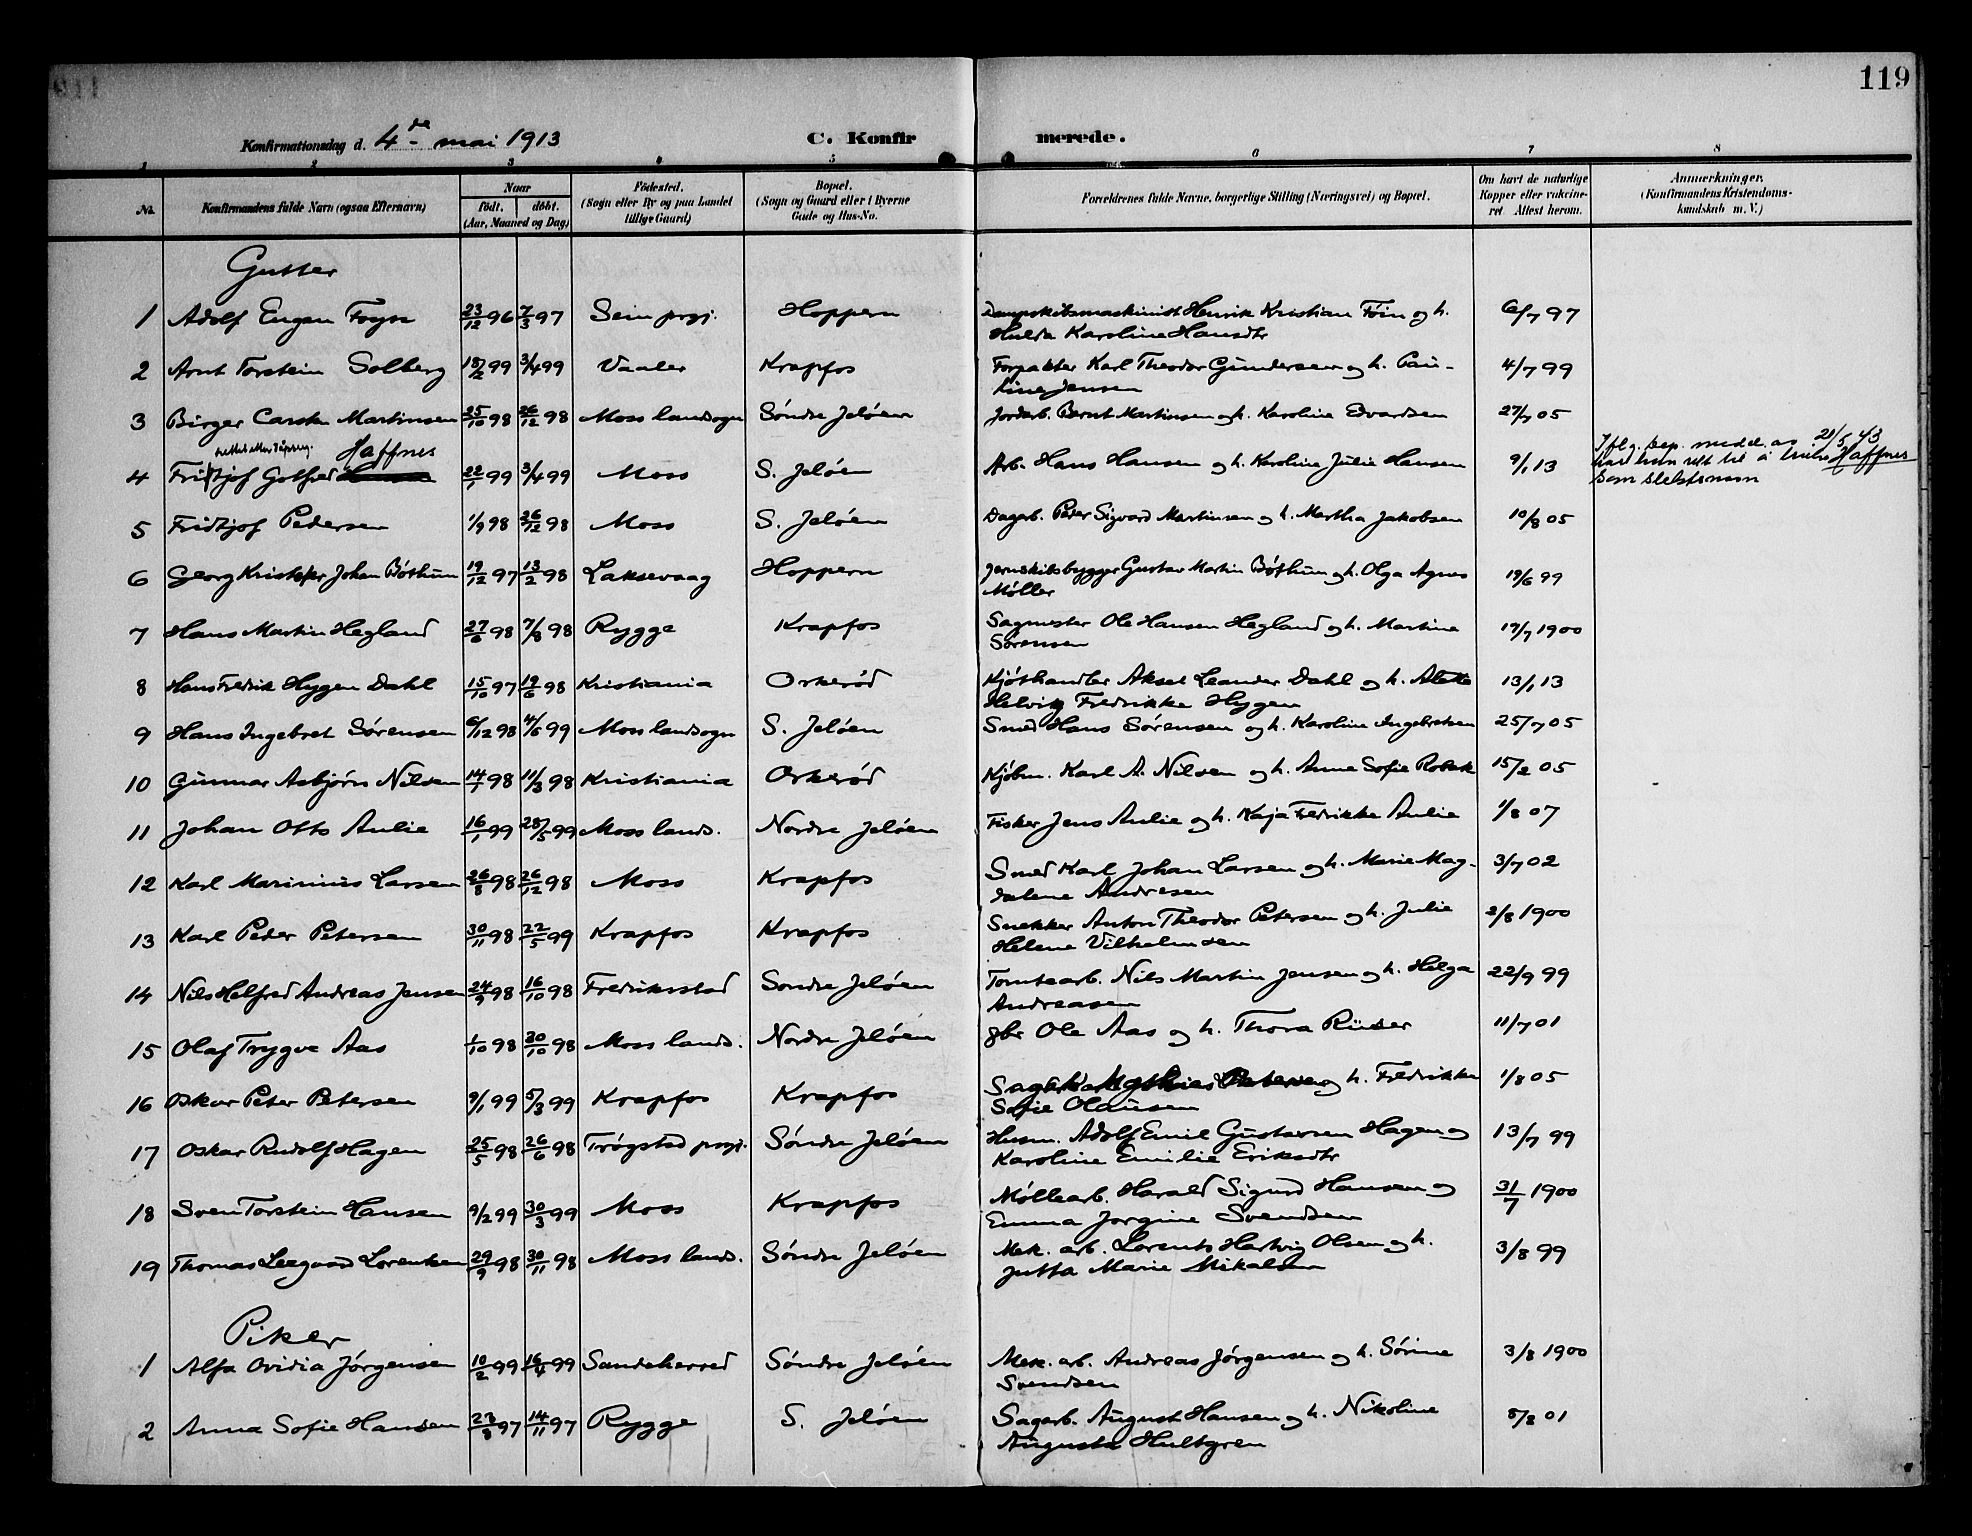 119
Konfirmationsdag d. 4de mai 1913
C. Konfirmerede.
1 2 3 4 5 6 7 8
No. Konfirmandens fulde Navn (ogsaa Efternavn) Naar født. døbt. (Aar, Maaned og Dag) Fødested. (Sogn eller By og paa Landet tillige Gaard) Bopæl. (Sogn og Gaard eller i Byerne Gade og Hus-No. Forældrenes fulde Navne, borgerlige Stilling (Næringsvei) og Bopæl. Om havt de naturlige Kopper eller vaccineret Attest herom. Anmærkninger. (Konfirmandens Kristendomskundskab m. V.)
Gutter
1 Adolf Eugen Foyn 23/12 96 7/3 97 Sem prgj. Hoppern Dampskibsmaskinist Henrik Kristian Föin og h. 6/7 97
Hulda Karoline Hansdtr
2 Arnt Torstein Solberg 18/2 99 3/4 99 Vaaler Krapfos Forpakter Karl Theodor Gundersen og h. Pau- 4/7 99
line Jensen
3 Birger Carsten Martinsen 25/10 98 26/12 98 Moss landsogn Søndre Jeløen Jordarb. Bernt Martinsen og h. Karoline Edvardsen 27/7 05
Haffnes
4 Fridtjof Gotfred 22/1 99 3/4 99 Moss S. Jeløen Arb. Hans Hansen og h. Karoline Julie Hansen 9/1 13 Iflg. dep. meddel. av 21/5 43
har han rett til å bruke Haffnes
som slektsnavn
5 Fridtjof Pedersen 1/9 98 26/12 98 Moss S. Jeløen Dagarb. Peder Sigvard Martinsen og h. Martha Jakobsen 10/8 05
6 Georg Kristofer Johan Bøthun 19/12 97 13/2 98 Laksevaag Hoppern Jernskibsbygger Gustav Martin Bøthun og h. Olga Agnes 19/6 99
Møller
7 Hans Martin Hegland 27/6 98 7/8 98 Rygge Krapfos Sagmester Ole Hansen Hegland og h. Martine 17/7 1900
Sørensen
8 Hans Fredrik Hygen Dahl 15/10 97 19/6 98 Kristiania Orkerød Kjøthandler Aksel Leander Dahl og h. Alette 13/1 13
Helvig Fredrikke Hygen
9 Hans Ingebret Sørensen 6/12 98 4/6 99 Moss landsogn S. Jeløen Smed Hans Sørensen og h. Karoline Ingebretsen 25/7 05
10 Gunnar Asbjørn Nilsen 14/1 98 11/3 98 Kristiania Orkerød Kjøbm. Karl A. Nilsen og h. Anne Sofie 15/2 05
11 Johan Otto Aulie 16/1 99 28/5 99 Moss lands. Nordre Jeløen Fisker Jens Aulie og h. Kaja Fredrikke Aulie 1/8 07
12 Karl Marinius Larsen 26/8 98 26/12 98 Moss Krapfos Smed Karl Johan Larsen og h. Marie Mag- 3/7 02
dalene Andresen
13 Karl Peder Petersen 30/11 98 22/5 99 Krapfos Krapfos Snekker Anton Theodor Petersen og h. Julie 2/8 1900
Helene Vilhelmsen
14 Nils Helfred Andreas Jensen 24/9 98 16/10 98 Fredriksstad Søndre Jeløen Tomtearb. Nils Martin Jensen og h. Helga 22/9 99
Andreasen
15 Olaf Trygve Aas 1/10 98 30/10 98 Moss lands. Nordre Jeløen gbr Ole Aas og h. Thora Rüder 11/7 01
16 Oskar Peter Petersen 9/1 99 5/3 99 Krapfos Krapfos Petersen og h. Fredrikke 1/8 05
Sofie Olausen
17 Oskar Rudolf Hagen 25/5 98 26/6 98 Trøgstad prgj. Søndre Jeløen Husm. Adolf Emil Gustavsen Hagen og 13/7 99
Karoline Emilie Eriksdtr
18 Sven Torstein Hansen 9/2 99 30/3 99 Moss Krapfos Møllearb. Harald Sigurd Hansen og 31/7 1900
Emma Jorgine Svendsen
19 Thomas Leegaard Lorentsen 29/9 98 30/11 98 Moss lands. Søndre Jeløen Mek. arb. Lorents Hartvig Olsen og h. 3/8 99
Jutta Marie Mikalsen
Piker
1 Alfa Ovidia Jørgensen 10/2 99 16/4 99 Sandeherred Søndre Jeløen Mek. arb. Andreas Jørgensen og h. Sørine 3/8 1900
Svendsen
2 Anna Sofie Hansen 23/8 97 14/11 97 Rygge S. Jeløen Sagarb. August Hansen og h. Nikoline 5/8 01
Augusta Hultgren